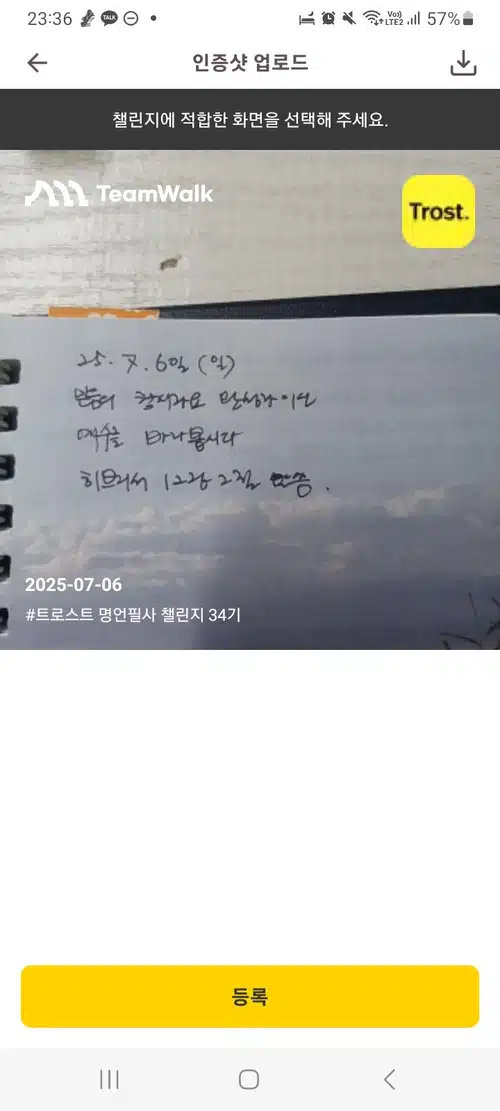 23:36 TALK Vo)) LTE2 57%
인증샷 업로드
챌린지에 적합한 화면을 선택해 주세요.
TeamWalk
Trost.
25. 7. 6일 (일)
믿음의 창시자요 완성자이신
예수를 바라봅시다
히브리서 12장 2절 말씀.
2025-07-06
#트로스트 명언필사 챌린지 34기
등록